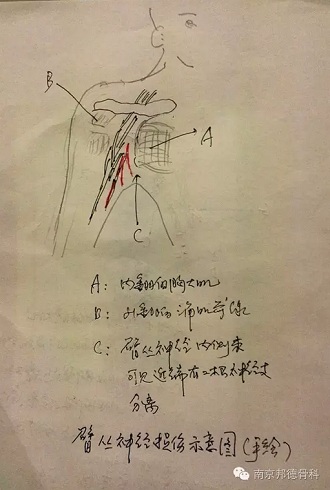 B
A
C
A: 内翻的胸大肌
B: 外翻的三角肌
C: 臂丛神经内侧束
可见近端有二根神经支
分离
臂丛神经损伤示意图(手绘)
南京邦德骨科